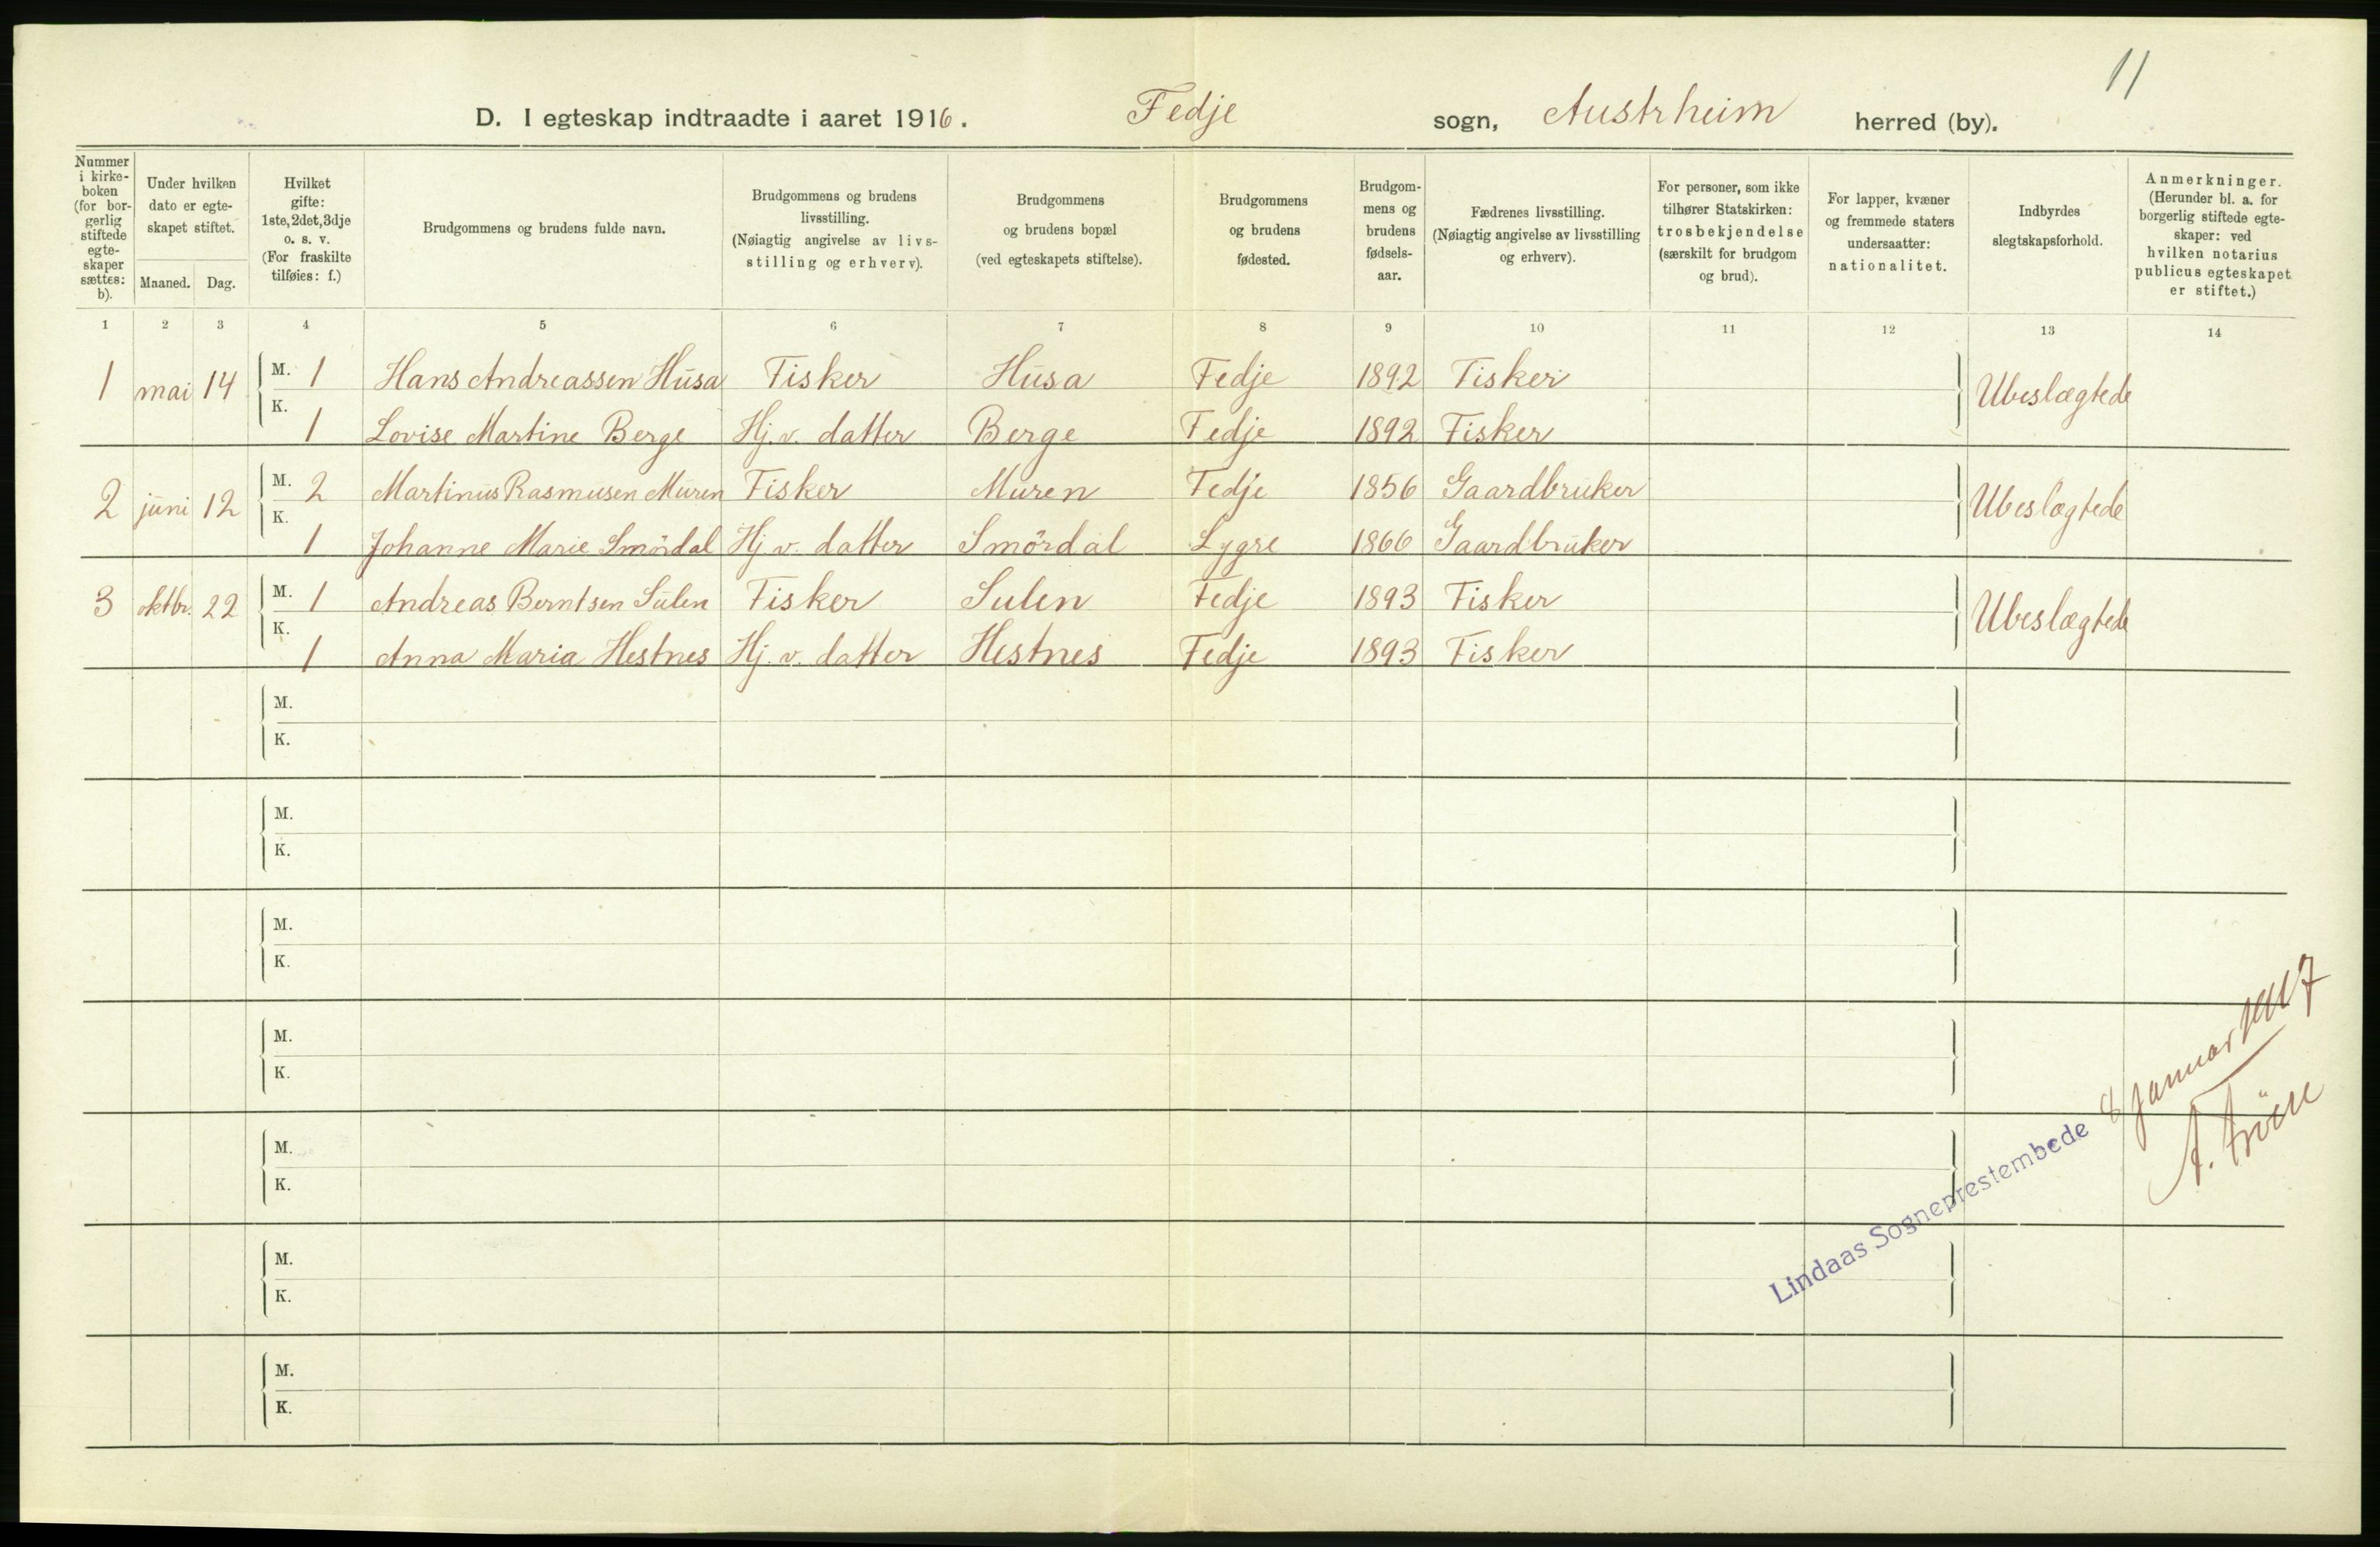 11
D. I egteskap indtraadte i aaret 1916. Fedje sogn, Austrheim herred (by).
Nummer i kirke-boken (for bor-gerlig stiftede egte-skaper sættes: b).
Under hvilken dato er egte-skapet stiftet.
Maaned. Dag.
Hvilket gifte: 1ste, 2det, 3dje o. s. v. (For fraskilte tilføies: f.)
Brudgommens og brudens fulde navn.
Brudgommens og brudens livsstilling. (Nøiagtig angivelse av livs-stilling og erhverv).
Brudgommens og brudens bopæl (ved egteskapets stiftelse).
Brudgommens og brudens fødested.
Brudgom-mens og brudens fødsels-aar.
Fædrenes livsstilling. (Nøiagtig angivelse av livsstilling og erhverv).
For personer, som ikke tilhører Statskirken: trosbekjendelse (særskilt for brudgom og brud).
For lapper, kvæner og fremmede staters undersaatter: nationalitet.
Indbyrdes slegtskapsforhold.
Anmerkninger. (Herunder bl. a. for borgerlig stiftede egte-skaper: ved hvilken notarius publicus egteskapet er stiftet.)
1 2 3 4 5 6 7 8 9 10 11 12 13 14
1 mai 14 M. 1 Hans Andreassen Husa Fisker Husa Fedje 1892 Fisker Ubeslægtede
K. 1 Lovise Martine Berge Hj. v. datter Berge Fedje 1892 Fisker
2 juni 12 M. 2 Martinus Rasmusen Muren Fisker Muren Fedje 1856 Gaardbruker Ubeslægtede
K. 1 Johanne Marie Smördal Hj. v. datter Smördal Lygre 1866 Gaardbruker
3 oktbr. 22 M. 1 Andreas Berntsen Sulen Fisker Sulen Fedje 1893 Fisker Ubeslægtede
K. 1 Anna Maria Hestnes Hj. v. datter Hestnes Fedje 1893 Fisker
M.
K.
M.
K.
M.
K.
M.
K.
M.
K.
M.
K.
M.
K.
Lindaas Sogneprestembede 8 januar 1917